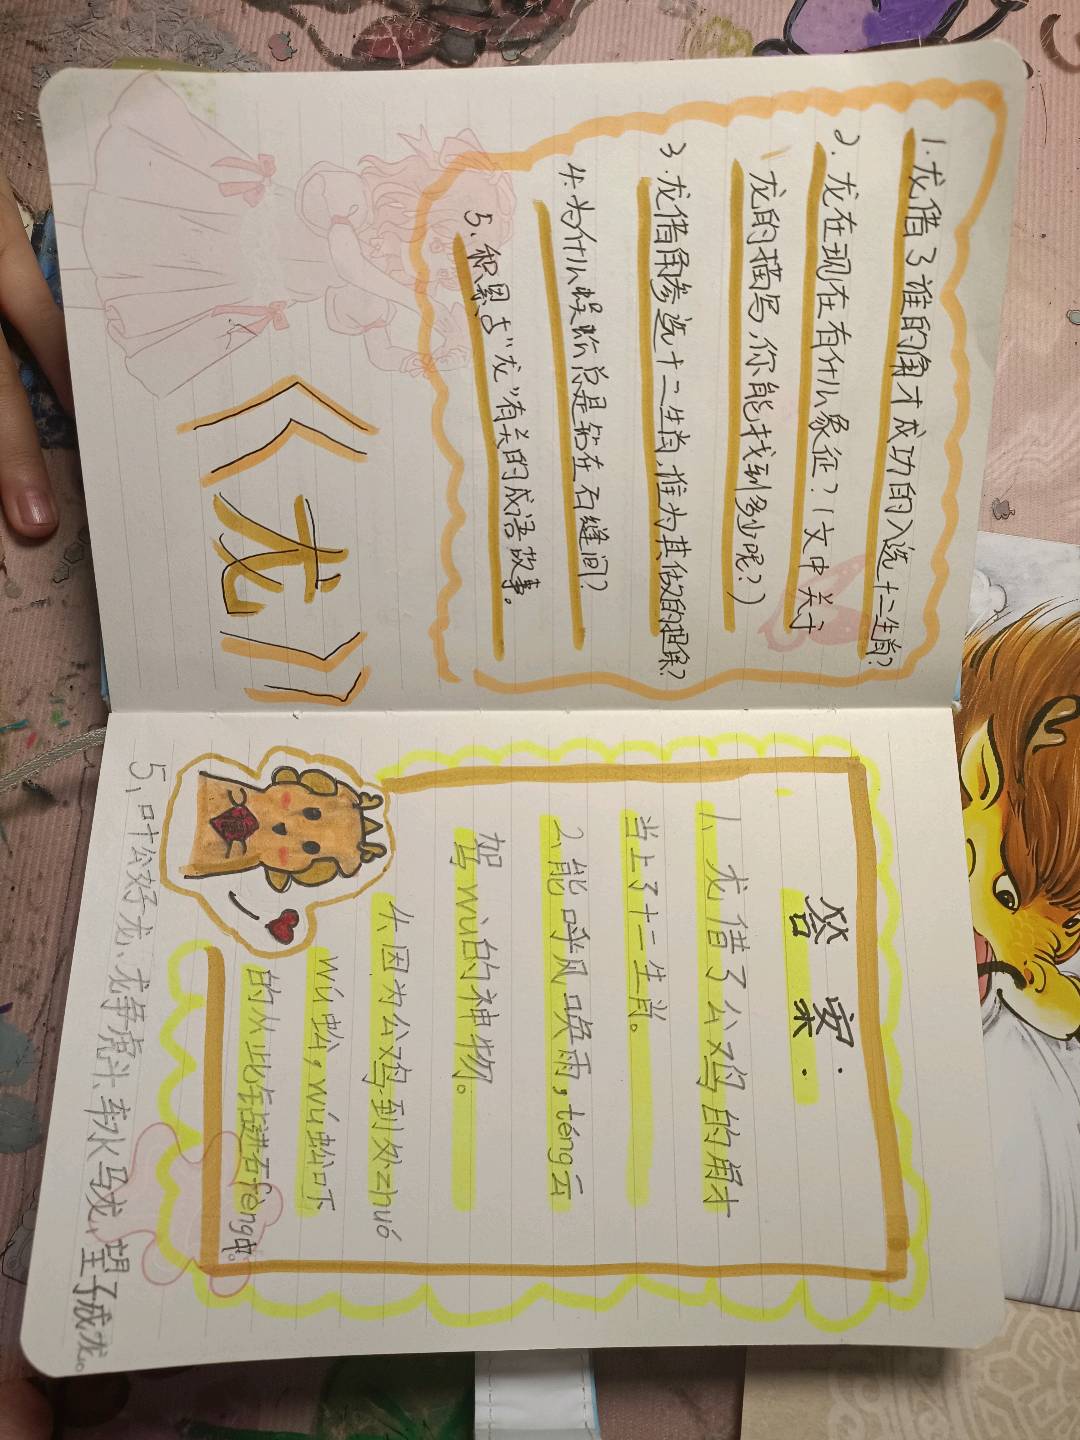 1.龙借了谁的角才成功的入选十二生肖?
2.龙在现在有什么象征?(文中关于
龙的描写,你能找到多少呢?)
3.龙借角参选十二生肖,谁为其做的担保?
4.为什么蜈蚣总是钻在石缝间?
5.积累与“龙”有关的成语故事。
《龙》
答案:
1、龙借了公鸡的角才
当上了十二生肖。
2.能呼风唤雨,téng云
驾wù的神物。
4.因为公鸡到处zhuó
wú蚣,wú蚣吓
的从此钻进石fèng中。
5、叶公好龙、龙争虎斗、车水马龙、望子成龙。